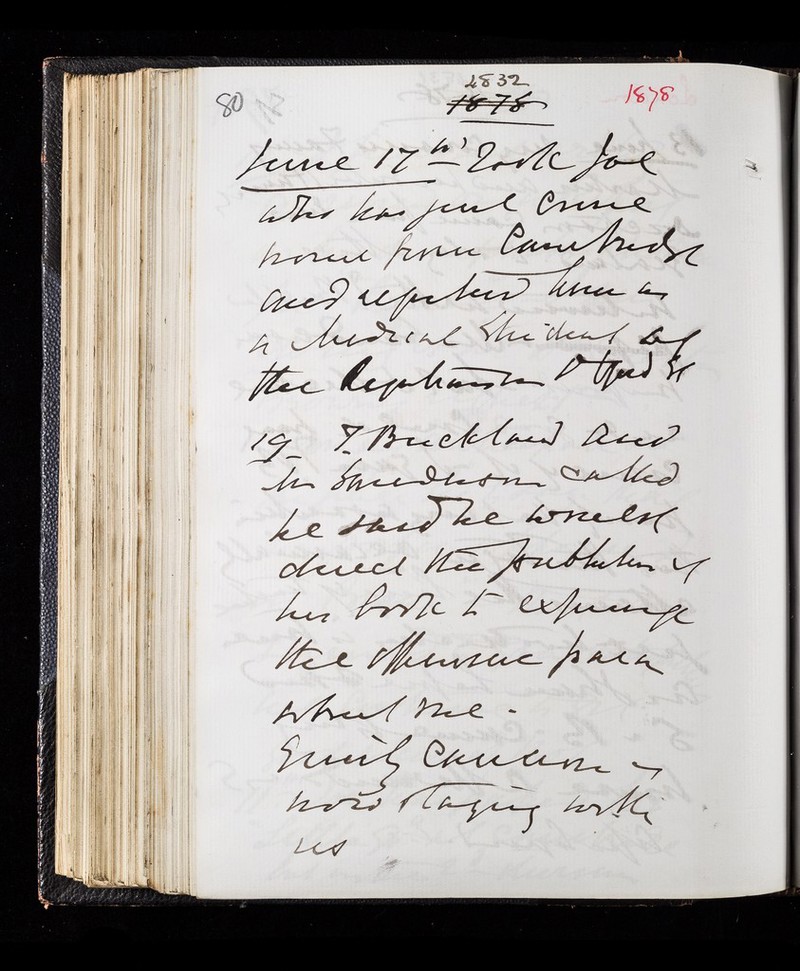 80
1832
1878
1878
June 17th Took Joe
who has just come
home from Cambridge
and registered him as
a Medical Student at
the Registration Office
19 F. Buckland and
called
he said he would
direct the publisher of
his book to expunge
the offensive para
about me -
Emily Cameron is
now staying with
us